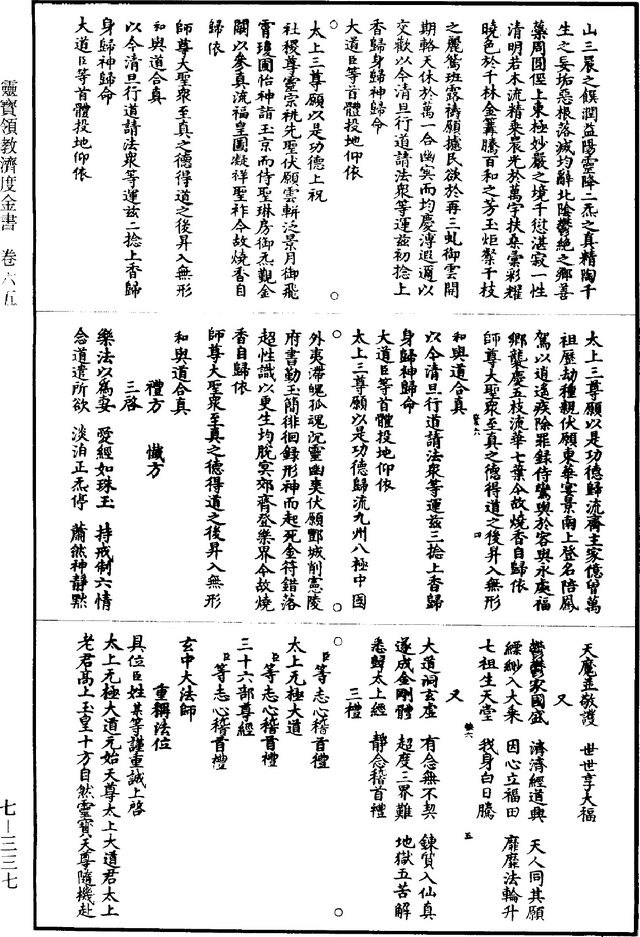 靈寶領教濟度金書　卷六五
七—三三七
山三晨之饌潤益陽靈降二炁之真精陶千
生之妄垢惡根落滅均辭北陰鬱絕之鄉善
藥周圓徑上東極妙嚴之境千愆湛寂一性
清明若木流精乘晨光於萬宇扶桑彙彩耀
曉色於千林金籌騰百和之芳玉炬縈千枝
之麗鴛班露禱願攄民欲於再三虬御雲開
期輅天休於萬一合幽冥而均慶溥遐邇以
交歡以今清旦行道請法衆等運茲初捻上
香歸身歸神歸命
大道臣等首體投地仰依
太上三尊願以是功德上祝
社稷尊靈宗祧先聖伏願雲軿泛景月御飛
霄瓊圃怡神詣玉京而侍聖琳房御炁觀金
闕以參真流福皇圖凝祥聖祚今故燒香自
歸依
師尊大聖衆至真之德得道之後昇入無形
和與道合真
以今清旦行道請法衆等運茲二捻上香歸
身歸神歸命
大道臣等首體投地仰依
太上三尊願以是功德歸流齋主家億曾萬
祖歷劫種親伏願東華宴景南上登名陪鳳
駕以逍遙疾除罪錄侍鸞輿於容與永處福
鄉襲慶五枝流華七葉今故燒香自歸依
師尊大聖衆至真之德得道之後昇入無形
和與道合真
以今清旦行道請法衆等運茲三捻上香歸
身歸神歸命
大道臣等首體投地仰依
太上三尊願以是功德歸流九州八極中國
外夷滯魄孤魂沉靈幽爽伏願酆城削憲陵
府書勤玉簡徘徊錄形神而起死金符錯落
超性識以更生均脫冥郊齊登樂界今故燒
香自歸依
師尊大聖衆至真之德得道之後昇入無形
和與道合真
禮方　懺方
三啓
樂法以爲妻　愛經如珠玉　持戒制六情
念道遣所欲　淡泊正炁停　蕭然神靜默
天魔並敬護　世世享大福
又
鬱鬱家國盛　濟濟經道興　天人同其願
縹緲入大乘　因心立福田　靡靡法輪升
七祖生天堂　我身白日騰
又
大道洞玄虛　有念無不契　鍊質入仙真
遂成金剛體　超度三界難　地獄五苦解
悉歸太上經　靜念稽首禮
三禮
臣等志心稽首禮
太上无極大道
臣等志心稽首禮
三十六部尊經
臣等志心稽首禮
玄中大法師
重稱法位
具位臣姓某等謹重誠上啓
太上无極大道元始天尊太上大道君太上
老君高上玉皇十方自然靈寶天尊隨機赴